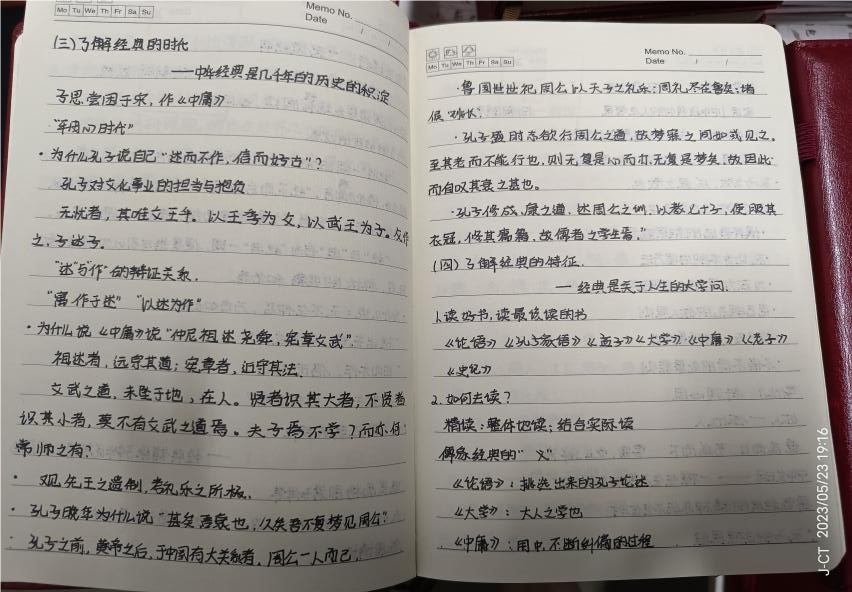 Memo No.
Mo Tu We Th Fr Sa Su
Date / /
(三)了解经典的时代
——中华经典是几千年的历史的积淀
子思尝困于宋，作《中庸》
"轴心时代"
·为什么孔子说自己"述而不作，信而好古"？
孔子对文化事业的担当与抱负
无忧者，其唯文王乎。以王季为父，以武王为子。父作
之，子述了。
"述"与"作"的辩证关系.
"寓作于述" "以述为作"
·为什么说《中庸》说"仲尼祖述尧舜，宪章文武".
祖述者，远守其道；宪章者，近守其法.
文武之道，未坠于地，在人。贤者识其大者，不贤者
识其小者，莫不有文武之道焉。夫子焉不学？而亦何
常师之有？
·观先王之遗制，考礼乐之所极.
·孔子晚年为什么说"甚矣吾衰也，久矣吾不复梦见周公"
·孔子之前，黄帝之后，于中国有大关系者，周公一人而已.
Memo No.
Mo Tu We Th Fr Sa Su
Date / /
·鲁国世世祀周公以天子之礼乐；周礼尽在鲁矣；诸
·孔子盛时志欲行周公之道，故梦寐之间如或见之。
至其老而不能行也，则无复是心而亦无复是梦矣，故因此
而自叹其衰之甚也。
·孔子修成、康之道，述周公之训，以教七十子，使服其
衣冠，修其篇籍，故儒者之学生焉."
(四)了解经典的特征.
——经典是关于人生的大学问.
1.读好书，读最该读的书
《论语》《孔子家语》《孟子》《大学》《中庸》《老子》
《史记》
2.如何去读？
精读；整体地读；结合实际读
儒家经典的"义"
《论语》：挑选出来的孔子论述
《大学》：大人之学也
《中庸》：用中，不断纠偏的过程
J-CT 2023/05/23 19:16